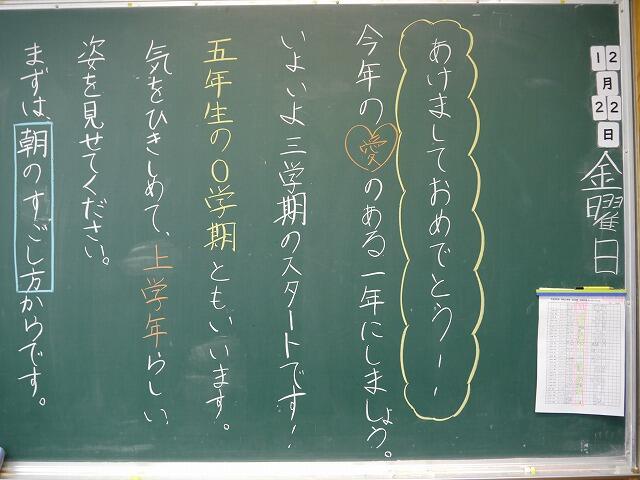 12月22日
金曜日
あけましておめでとうー！
今年の愛のある一年にしましょう。
いよいよ三学期のスタートです！
五年生の0学期ともいいます。
気をひきしめて、上学年らしい
姿を見せてください。
まずは、朝のすごし方からです。